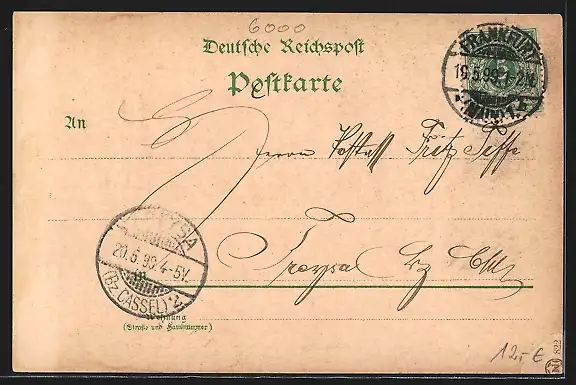 6000
Deutsche Reichspost
Postkarte
FRANKFURT
19.5.99.1-2N.
(MAIN) 1.
An
Herrn Postass Fritz
Treysa Bz
TREYSA
20.5.99.4-5V.
(Bz. CASSEL)
Wohnung
(Straße und Hausnummer)
12,- €
822